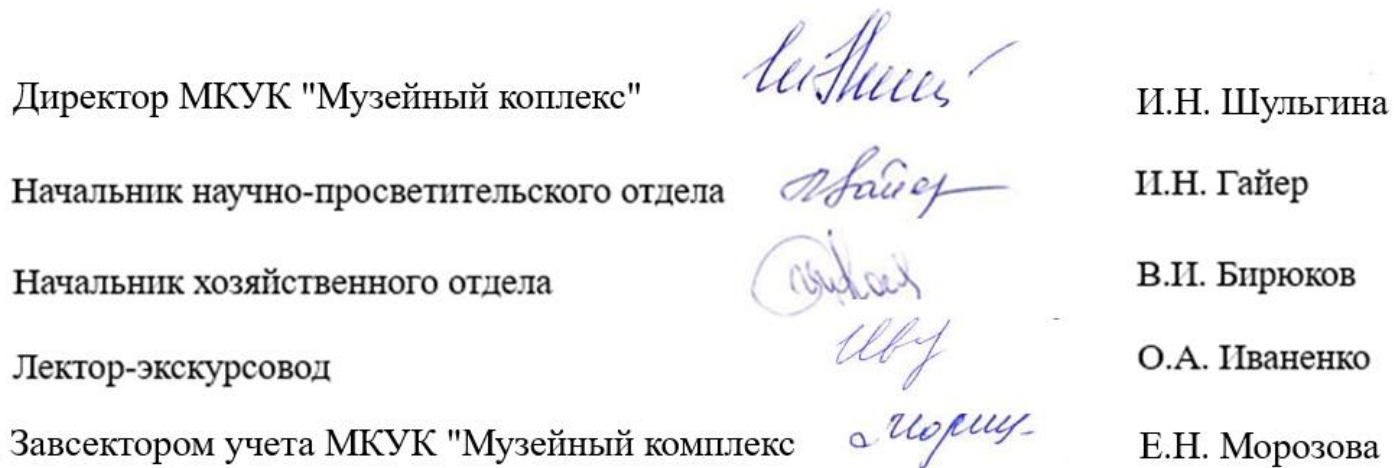 Директор МКУК "Музейный коплекс" И.Н. Шульгина
Начальник научно-просветительского отдела Гайер И.Н. Гайер
Начальник хозяйственного отдела В.И. Бирюков
Лектор-экскурсовод Ив О.А. Иваненко
Завсектором учета МКУК "Музейный комплекс Е.Н. Морозова